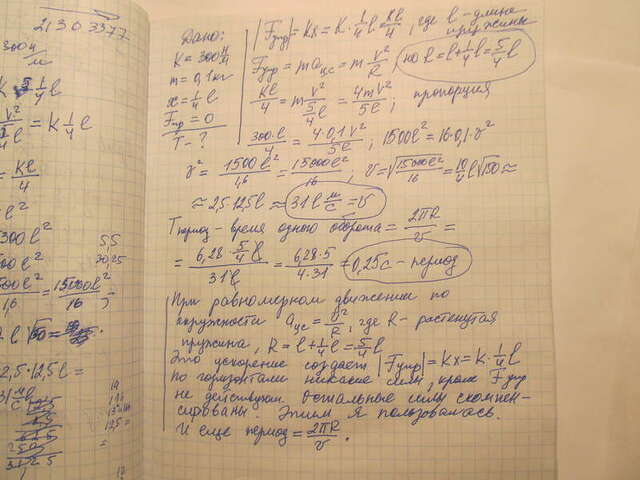 21303377
300 Н/м
К 5/4 l
= К 1/4 l
= Kl/4
300l²
1,6 = 15000l²/16
2,5·12,5l =
5,5
30,25
Дано:
К = 300 Н/м
m = 0,1кг
x = 1/4 l
Fтр = 0
T - ?
|Fупр| = Kx = K·1/4 l = Kl/4, где l - длина пружины
Fупр = m aцс = m v²/R, но l = l + 1/4 l = 5/4 l
Kl/4 = m v²/(5/4 l) = 4mv²/5l; пропорция
300·l/4 = 4·0,1 v²/5l; 1500l² = 16·0,1·v²
v² = 1500l²/1,6 = 15000l²/16; v = √(15000l²/16) = 10/4 l√150 ≈
≈ 2,5·12,5l ≈ 31l м/с = v
Tпериод - время одного оборота = 2πR/v =
= 6,28·5/4 l / 31l = 6,28·5/4·31 = 0,25с - период
При равномерном движении по
окружности aцс = v²/R, где R - растянутая
пружина, R = l + 1/4 l = 5/4 l
Это ускорение создает |Fупр| = Kx = K·1/4 l
по горизонтали никакие силы, кроме Fупр
не действуют. Остальные силы скомпен-
сированы. Этим я пользовалась.
И еще период = 2πR/v.